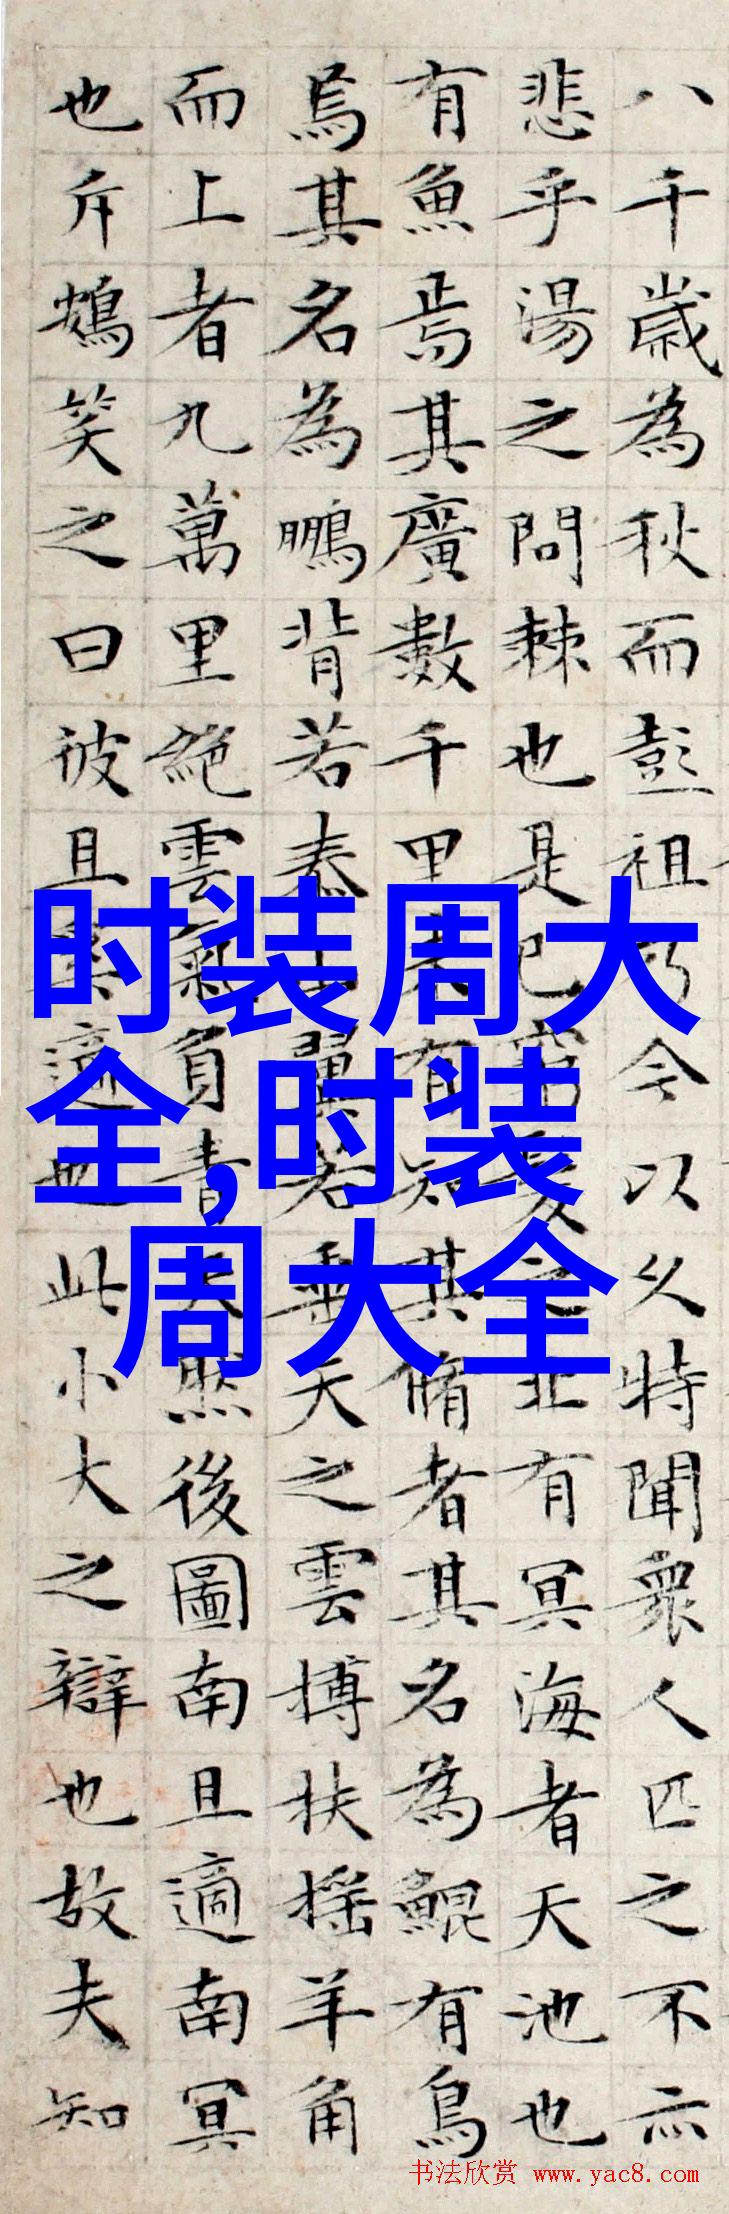 八千歲為秋而彭祖乃今以久特聞衆人匹之不亦
悲乎湯之問棘也是已窮髮之北有冥海者天池也
有魚焉其廣數千里未有知其脩者其名為鯤有鳥
焉其名為鵬背若泰山翼若垂天之雲搏扶搖羊角
而上者九萬里絕雲氣負青天然後圖南且適南冥
也斥鴳笑之曰彼且奚適也此小大之辯也故夫知
时装周大
全,时装
周大全
书法欣赏 www.yac8.com